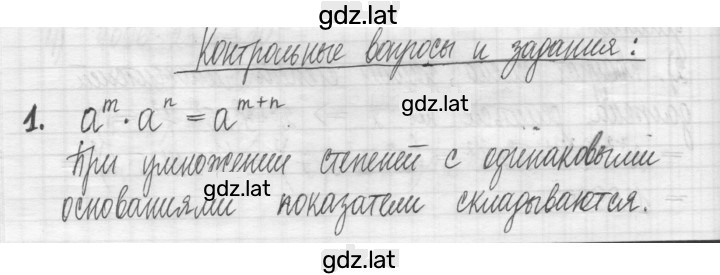 gdz.lat
Контрольные вопросы и задания:
1. a^m · a^n = a^{m+n}
gdz.lat
При умножении степеней с одинаковыми
gdz.lat
основаниями показатели складываются.
gdz.lat